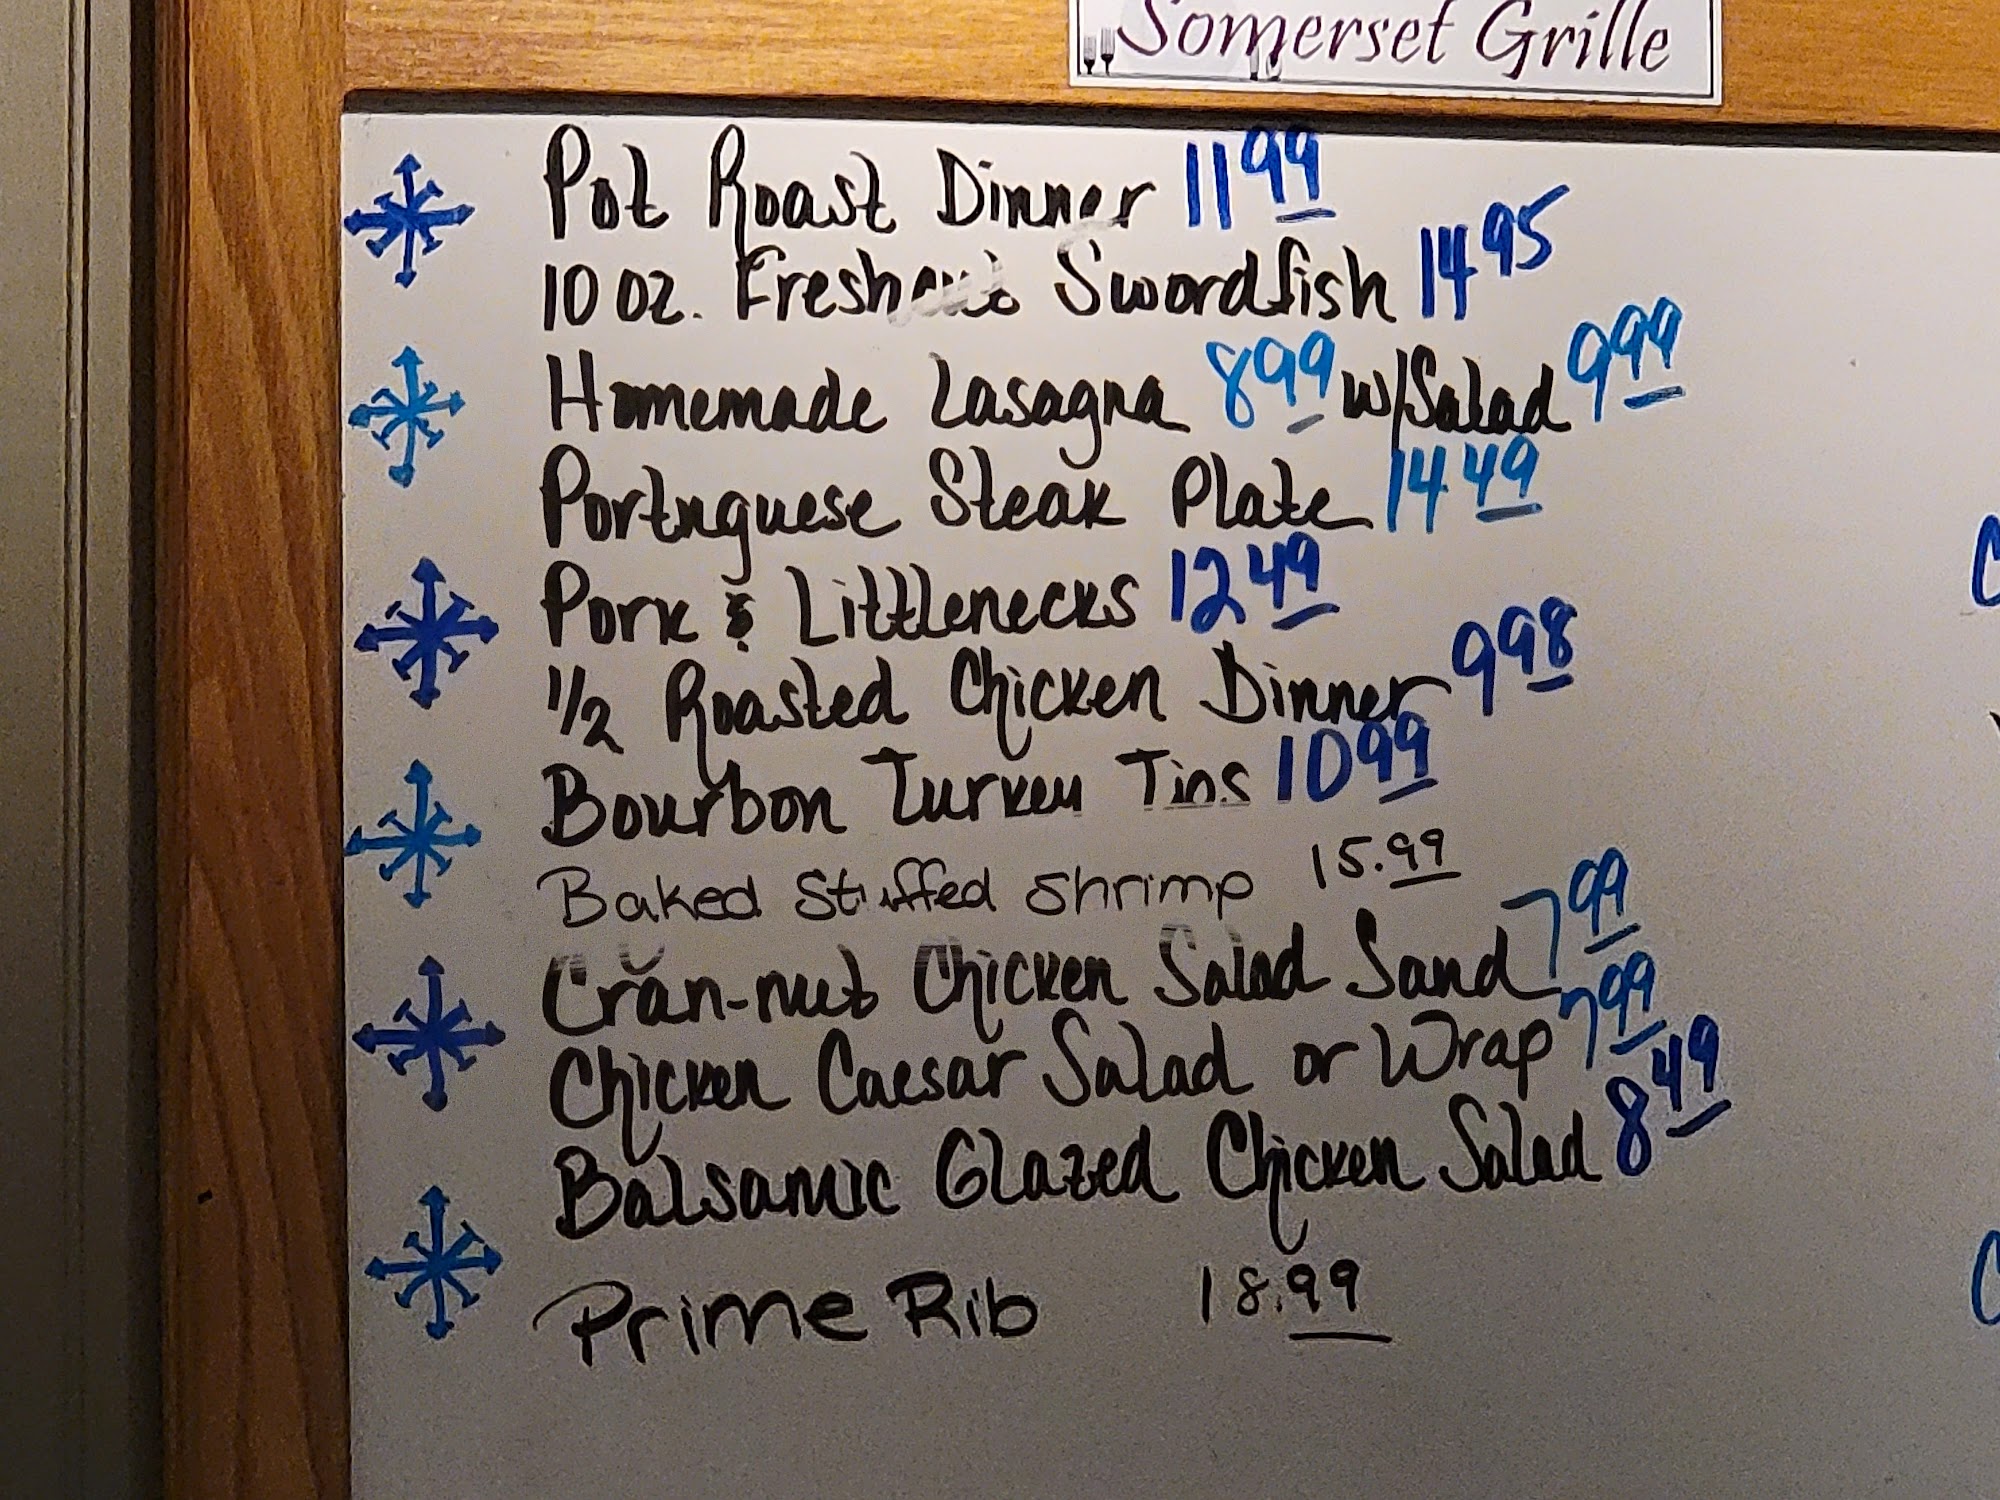 Somerset Grille
Pot Roast Dinner 11 99
10 oz. Fresh cut Swordfish 14 95
Homemade Lasagna 8 99 w/Salad 9 99
Portuguese Steak Plate 14 49
Pork & Littlenecks 12 49
1/2 Roasted Chicken Dinner 9 98
Bourbon Turkey Tips 10 99
Baked Stuffed Shrimp 15.99
Cran-nut Chicken Salad Sand 7 99
Chicken Caesar Salad or Wrap 7 99
Balsamic Glazed Chicken Salad 8 49
Prime Rib 18.99